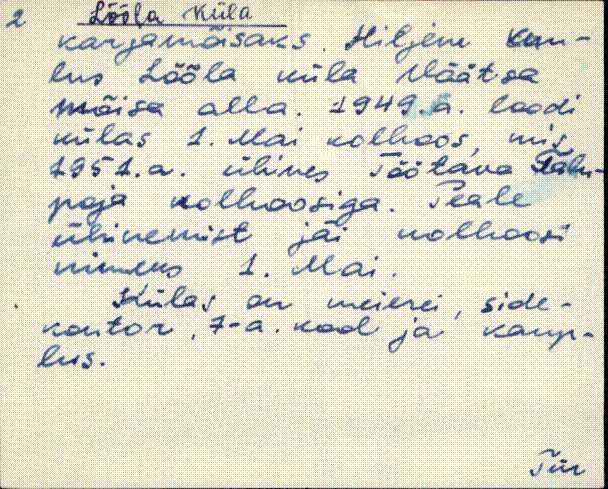 2 Lõõla Küla
karjamõisaks. Hiljem kuu-
lus Lõõla küla Väätsa
mõisa alla. 1949.a. loodi
külas 1. Mai kolhoos, mis
1951.a. ühines Töötava Talu-
poja kolhoosiga. Peale
ühinemist jäi kolhoosi
nimeks 1. Mai.
Külas on meierei, side-
kontor, 7-a. kool ja kaup-
lus.
Tür